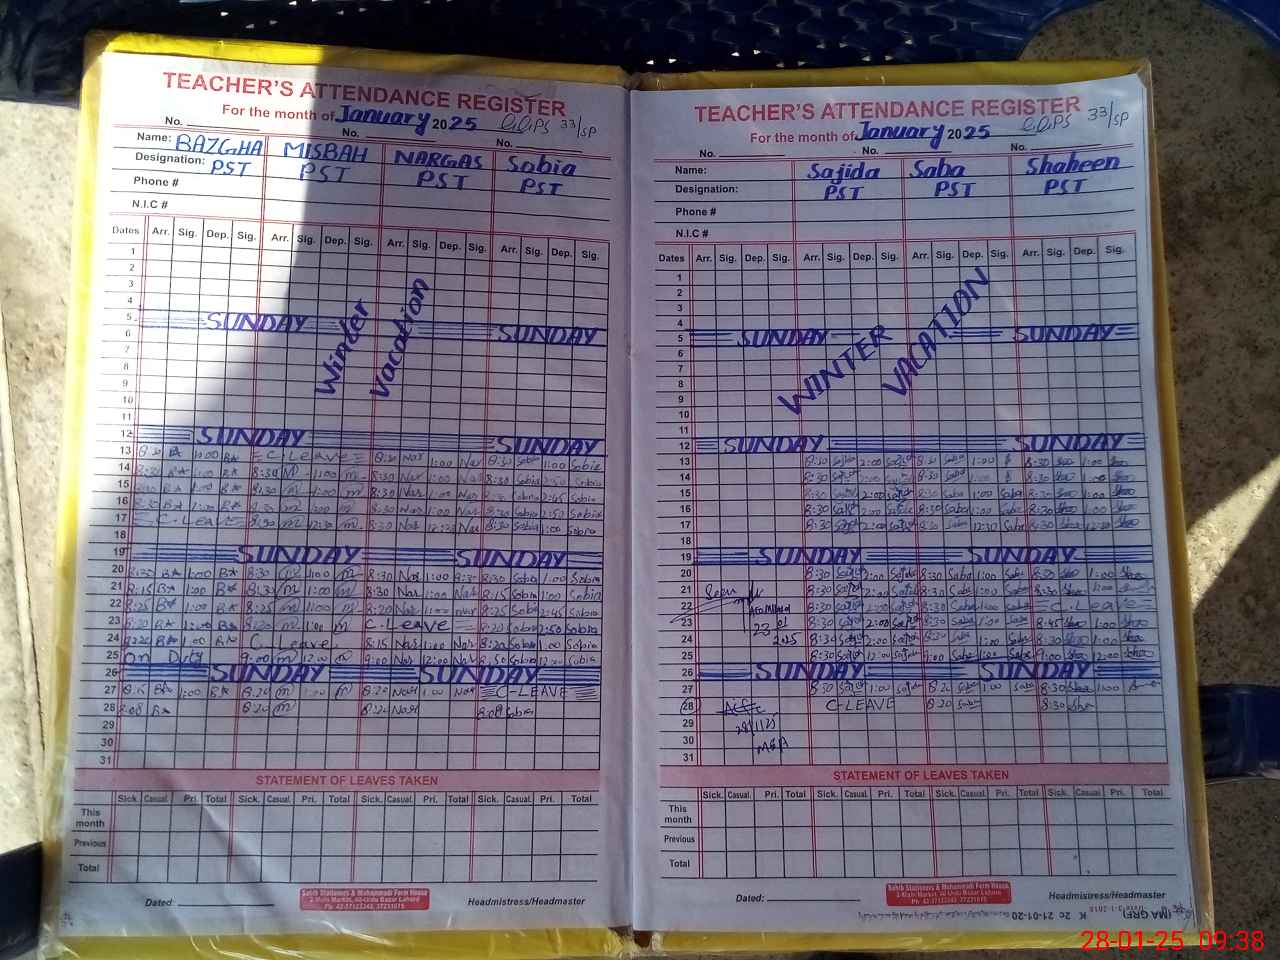 TEACHER'S ATTENDANCE REGISTER
For the month of January 2025 33/SP
No. No. No.
Name: BAZGHA MISBAH NARGAS Sobia
Designation: PST PST PST PST
Phone #
N.I.C #
Dates Arr. Sig. Dep. Sig. Arr. Sig. Dep. Sig. Arr. Sig. Dep. Sig. Arr. Sig. Dep. Sig.
1
2
3
4
5 SUNDAY SUNDAY
6
7
8
9
10
11
Winter Vacation
12 SUNDAY SUNDAY
13 8:30 1:00 C-Leave 8:30 Nar 1:00 Nar 8:30 Sobia 1:00 Sobia
14 8:30 1:00 8:30 m 1:00 m 8:30 Nar 1:00 Nar 8:30 Sobia Sobia
15 8:30 1:00 8:30 m 1:00 m 8:30 Nar 1:00 Nar 8:30 Sobia 2:45 Sobia
16 8:30 1:00 8:30 m 2:00 m 8:30 Nar 1:00 Nar 8:30 Sobia 2:50 Sobia
17 C-Leave 8:30 m 12:30 m 8:30 Nar 12:30 Nar 8:30 Sobia 1:00 Sobia
18
19 SUNDAY SUNDAY
20 8:30 1:00 8:30 m 1:00 m 8:30 Nar 1:00 8:30 Sobia 1:00 Sobia
21 8:15 1:00 8:30 m 1:00 m 8:30 Nar 1:00 Nar 8:15 Sobia 1:00 Sobia
22 8:25 1:00 8:25 m 1:00 m 8:20 Nar 1:00 nar 8:25 Sobia 2:45 Sobia
23 8:20 1:00 8:20 m 1:00 m C-Leave 8:20 Sobia 2:50 Sobia
24 8:20 1:00 C Leave 8:15 Nar 1:00 Nar 8:20 Sobia 1:00 Sobia
25 On Duty 9:00 m 12:00 m 9:00 Nar 12:00 Nar 8:50 Sobia 12:00 Sobia
26 SUNDAY SUNDAY
27 8:15 1:00 8:20 m 1:00 m 8:20 Nar 1:00 Nar C-LEAVE
28 8:08 8:20 m 8:20 Nar 8:08 Sobia
29
30
31
STATEMENT OF LEAVES TAKEN
Sick. Casual. Pri. Total Sick. Casual. Pri. Total Sick. Casual. Pri. Total Sick. Casual. Pri. Total
This month
Previous
Total
Sahib Stationers & Mohammadi Form House
2-Main Market, 40-Urdu Bazar Lahore
Ph: 42-37122343, 37231615
Dated: Headmistress/Headmaster
TEACHER'S ATTENDANCE REGISTER
For the month of January 2025 33/SP
No. No. No.
Name: Sajida Saba Shaheen
Designation: PST PST PST
Phone #
N.I.C #
Dates Arr. Sig. Dep. Sig. Arr. Sig. Dep. Sig. Arr. Sig. Dep. Sig. Arr. Sig. Dep. Sig.
1
2
3
4
5 SUNDAY SUNDAY
6
7
8
9
10
11
WINTER VACATION
12 SUNDAY SUNDAY
13 8:30 Sajida 2:00 Sajida 8:30 Saba 1:00 8:30 1:00
14 8:30 Sajida 2:00 Sajida 8:30 Saba 1:00 8:30 1:00
15 8:30 Sajida 2:00 Sajida 8:30 Saba 1:00 Saba 8:30 1:00
16 8:30 Sajida 2:00 Sajida 8:30 Saba 1:00 Saba 8:30 1:00
17 8:30 Sajida 2:00 Sajida 8:30 Saba 12:30 Saba 8:30 12:30
18
19 SUNDAY SUNDAY
20 8:30 Sajida 2:00 Sajida 8:30 Saba 1:00 Saba 8:30 1:00
21 Seen 8:30 Sajida 2:00 Sajida 8:30 Saba 1:00 Saba 8:30 1:00
22 8:30 Sajida 2:00 Sajida 8:30 Saba 1:00 Saba C-Leave
23 23 01 8:30 Sajida 2:00 Sajida 8:30 Saba 1:00 Saba 8:45 1:00
24 2025 Sajida 2:00 Sajida 8:30 Saba 1:00 Saba 8:30 1:00
25 8:30 Sajida 12:00 Sajida 9:00 Saba 1:00 Saba 9:00 12:00
26 SUNDAY SUNDAY
27 8:30 Sajida 1:00 Sajida 8:20 Saba 1:00 Saba 8:30 1:00
28 C-LEAVE 8:20 Saba 8:30
29 28/1/25
30 MEA
31
STATEMENT OF LEAVES TAKEN
Sick. Casual. Pri. Total Sick. Casual. Pri. Total Sick. Casual. Pri. Total Sick. Casual. Pri. Total
This month
Previous
Total
Sahib Stationers & Mohammadi Form House
2-Main Market, 40-Urdu Bazar Lahore
Ph: 42-37122343, 37231615
Dated: Headmistress/Headmaster
28-01-25 09:38